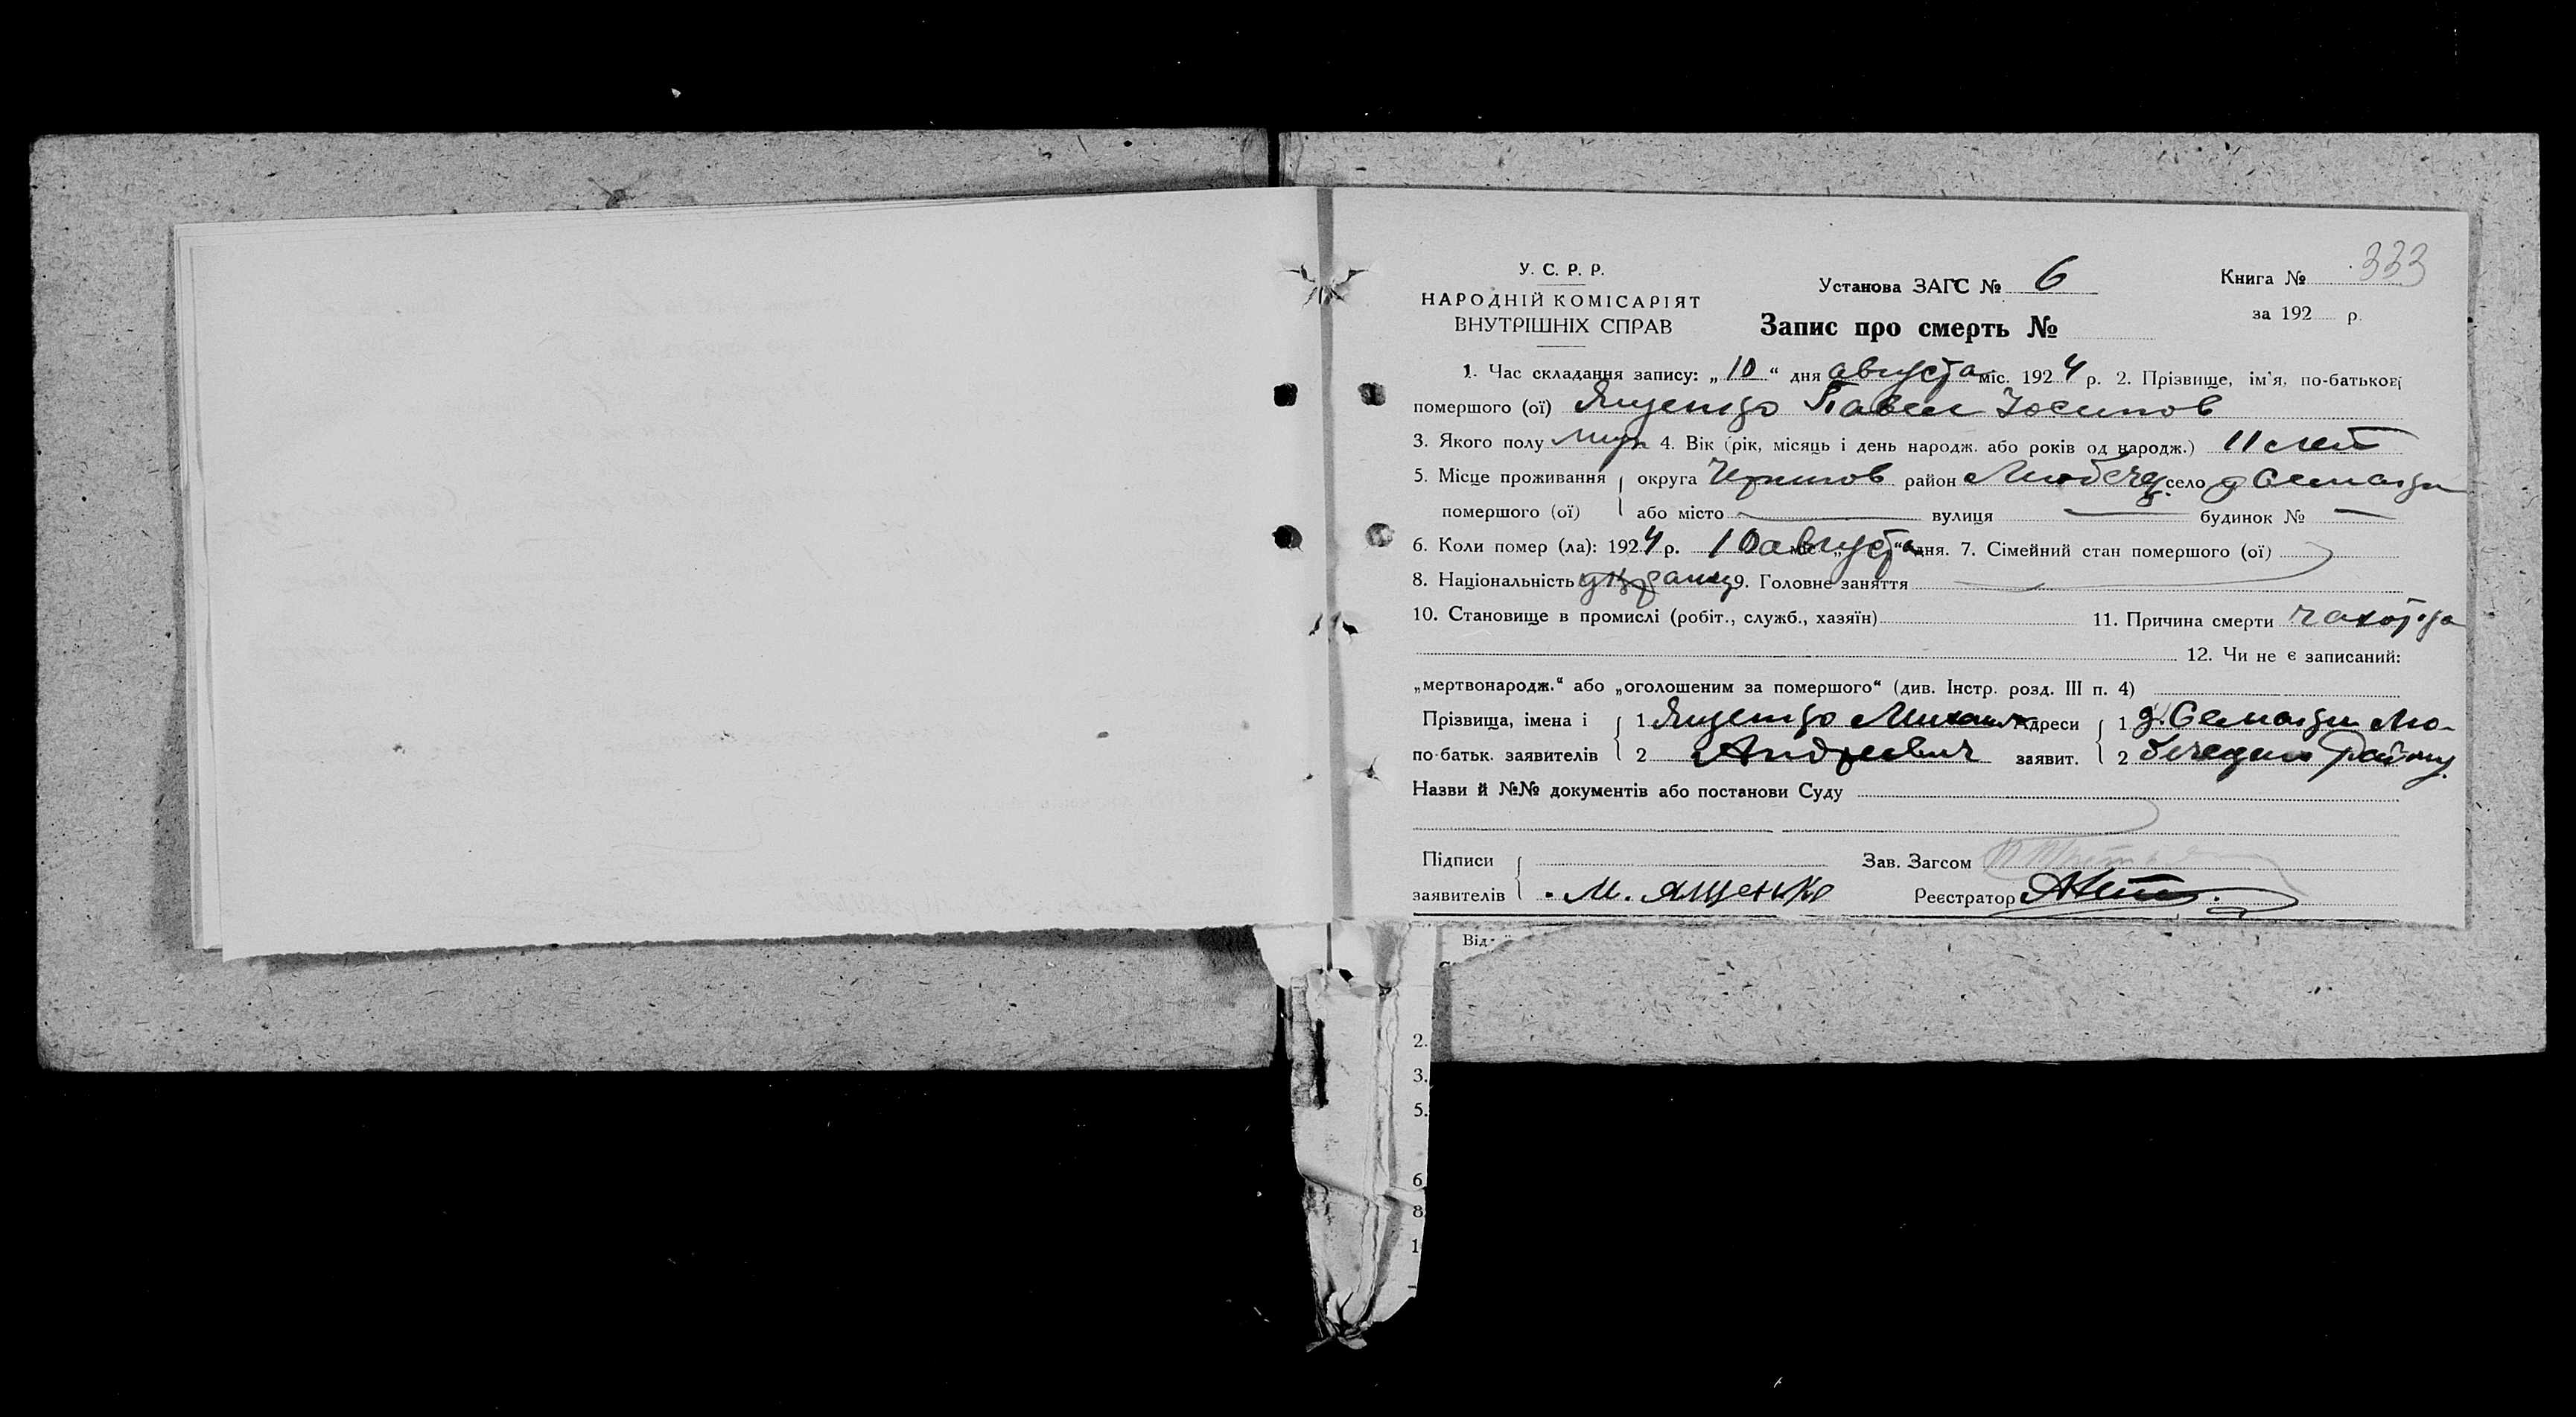 У. С. Р. Р.
НАРОДНІЙ КОМІСАРІЯТ
ВНУТРІШНІХ СПРАВ
Установа ЗАГС № 6
Запис про смерть №
Книга № 333
за 192 р.
1. Час складання запису: „10“ дня августа міс. 1924 р. 2. Прізвище, ім'я, по-батькові
помершого (ої) Ященко Павел Иосипов
3. Якого полу муж 4. Вік (рік, місяць і день народж. або років од народж.) 11 лет
5. Місце проживання округа Чернигов район Любечск. село д Семаки
помершого (ої) або місто — вулиця — будинок № —
6. Коли помер (ла): 1924 р. 10 августа міс. „ “ дня. 7. Сімейний стан помершого (ої)
8. Національність 9. Головне заняття
10. Становище в промислі (робіт., служб., хазяїн) 11. Причина смерти чахотка
12. Чи не є записаний:
„мертвонародж.“ або „оголошеним за помершого“ (див. Інстр. розд. III п. 4)
Прізвища, імена і 1 Ященко Михаил Адреси 1 д. Семаки Лю-
по-батьк. заявителів 2 Андреевич заявит. 2
Назви й №№ документів або постанови Суду
Підписи Зав. Загсом
заявителів М. Ященко Реєстратор
Від
2.
3.
5.
6
8
1